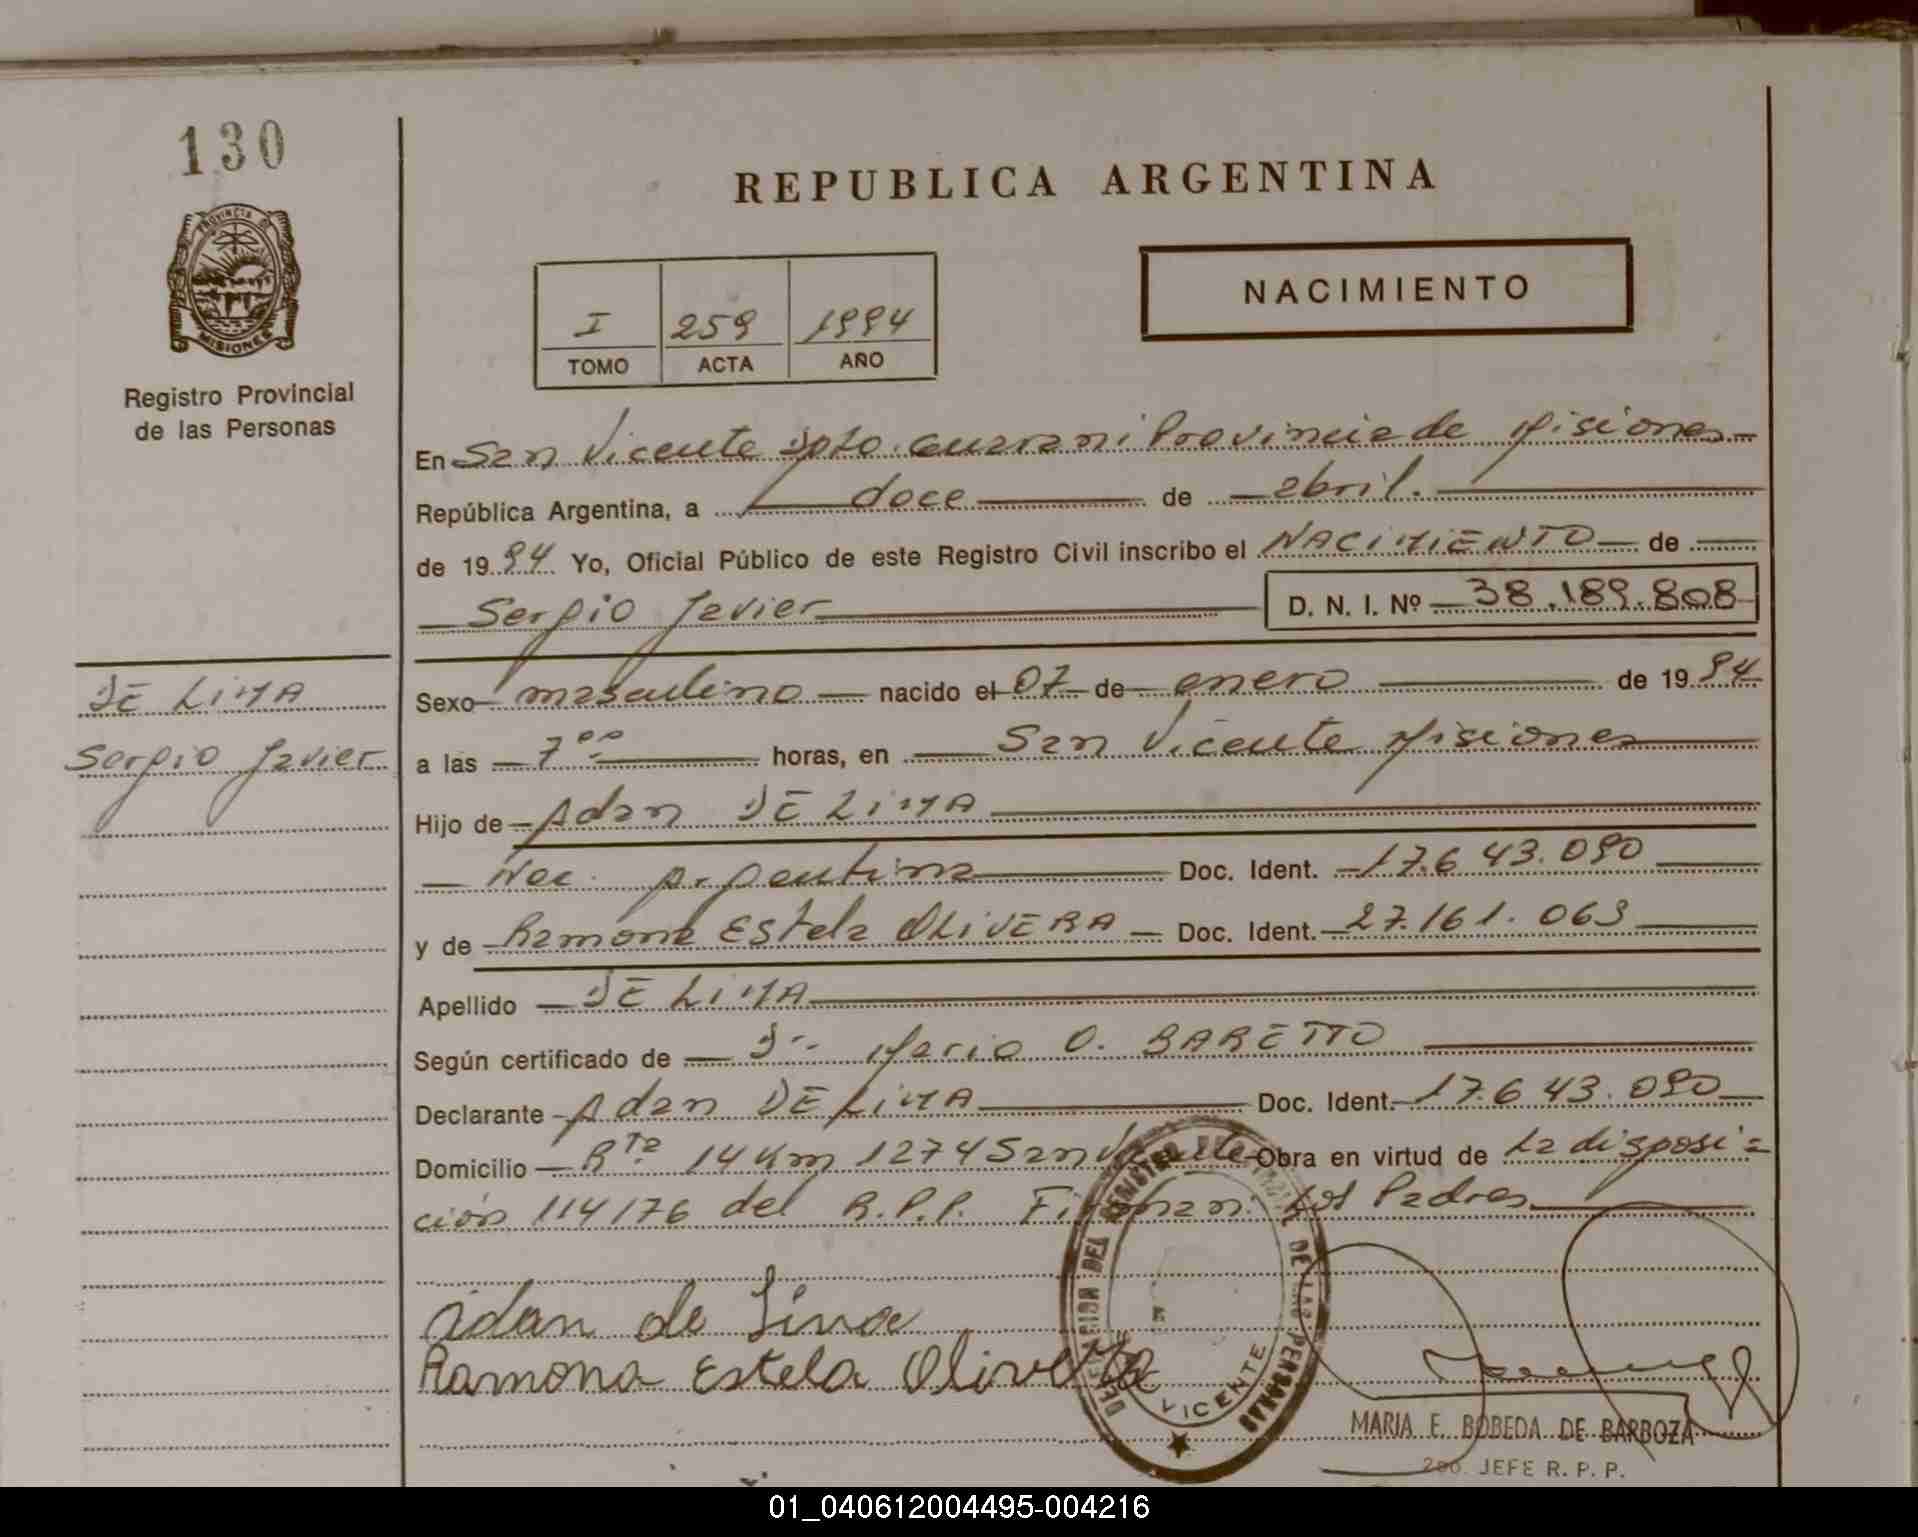 130
PROVINCIA DE
MISIONES
Registro Provincial
de las Personas
REPUBLICA ARGENTINA
I 259 1994
TOMO ACTA AÑO
NACIMIENTO
En San Vicente Dpto. Guarani Provincia de Misiones
República Argentina, a doce de abril.
de 1994 Yo, Oficial Público de este Registro Civil inscribo el NACIMIENTO de
Sergio Javier D. N. I. Nº 38.189.808
DE LIMA
Sergio Javier
Sexo masculino nacido el 07 de enero de 1994
a las 7 00 horas, en San Vicente Misiones
Hijo de Adan DE LIMA
Nac. Argentina Doc. Ident. 17.643.090
y de Ramona Estela OLIVERA Doc. Ident. 27.161.063
Apellido DE LIMA
Según certificado de Dr. Mario O. BARETTO
Declarante Adan DE LIMA Doc. Ident. 17.643.090
Domicilio Rta 14 Km 1274 San Vicente Obra en virtud de La disposi=
ción 114/76 del R.P.P. Firman: Los Padres
Adan de Lima
Ramona Estela Olivera
DELEGACION DEL REGISTRO PROVINCIAL DE LAS PERSONAS
VICENTE
MARIA E. BOBEDA DE BARBOZA
2do. JEFE R. P. P.
01_040612004495-004216